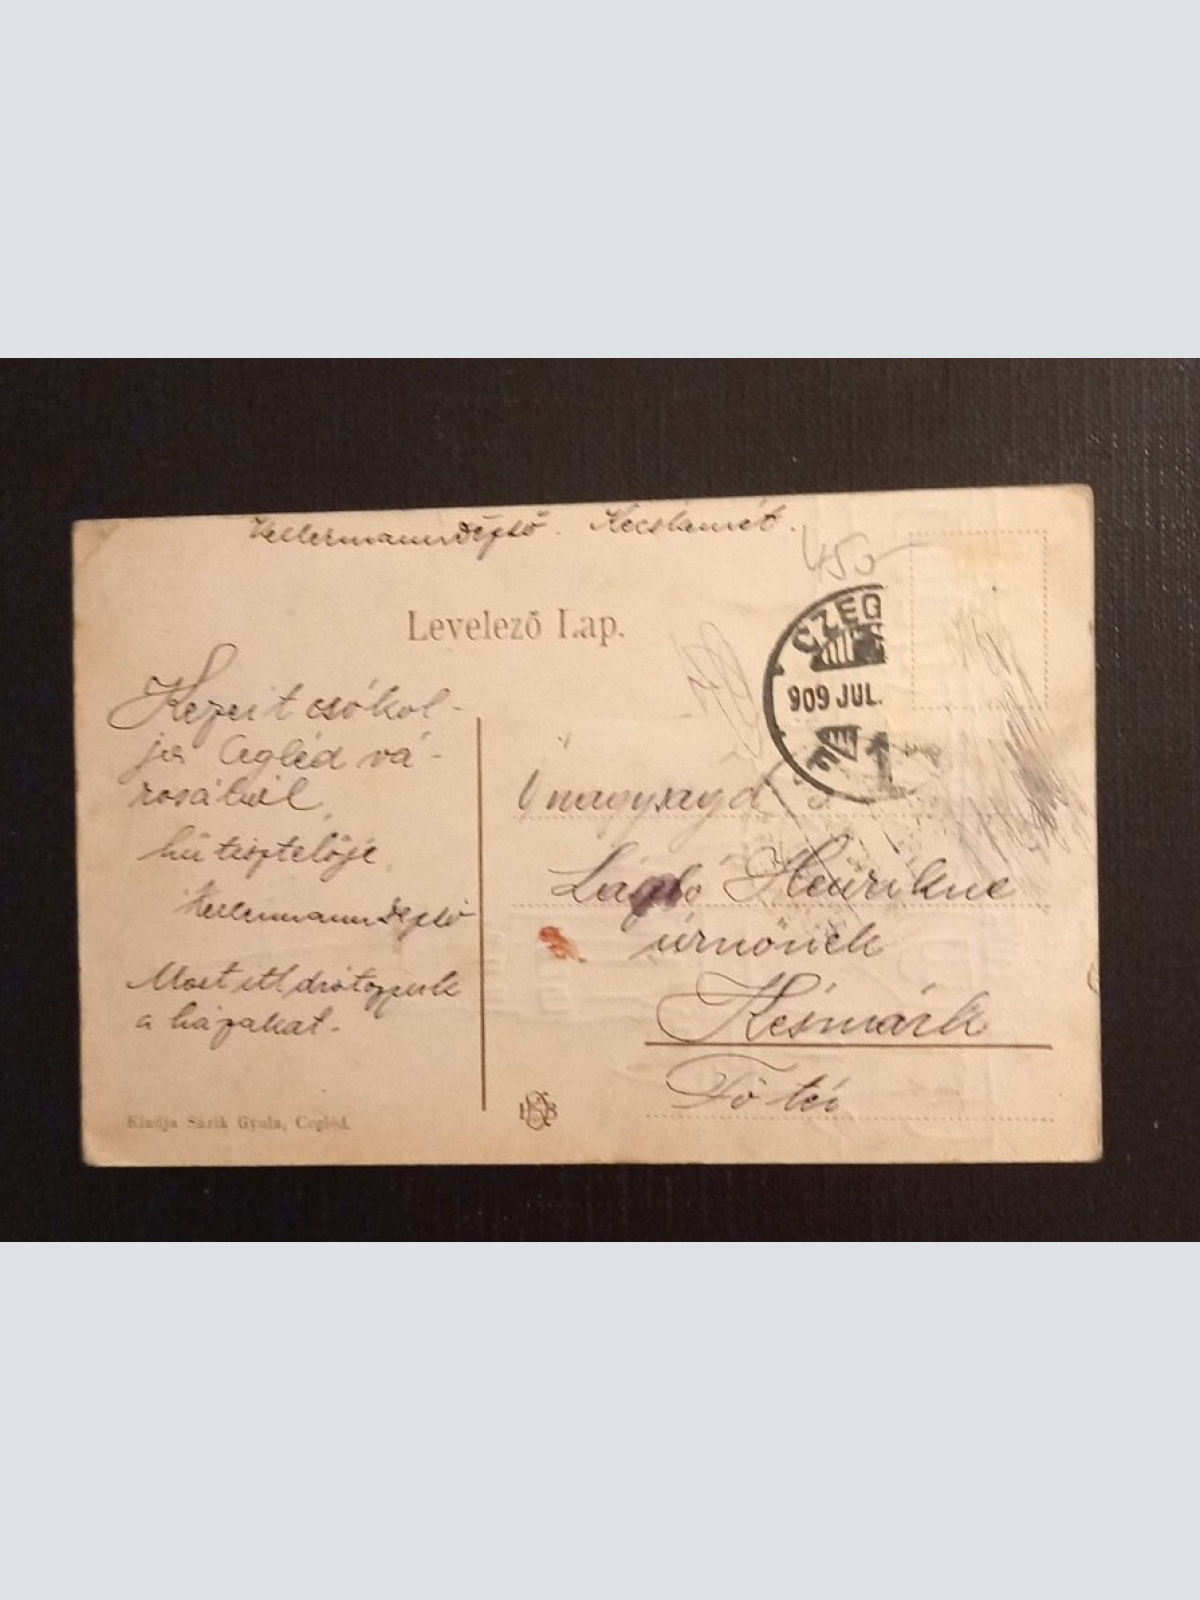 Kellermann Dezső. Kecskemét.
450
Levelező Lap.
CZEG
909 JUL.
1
Kezeit csókol-
ja Cegléd vá-
rosából
hű tisztelője
Kellermann Dezső
Most itt drótozzuk
a házakat.
Őnagysága
László Henrikné
úrnőnek
Késmárk
Fő tér
Kiadja Sárik Gyula, Cegléd.